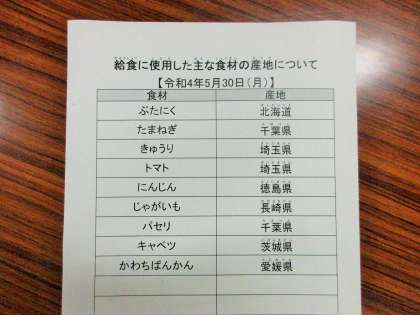 給食に使用した主な食材の産地について
【令和4年5月30日（月）】
食材 産地
ぶたにく 北海道
たまねぎ 千葉県
きゅうり 埼玉県
トマト 埼玉県
にんじん 徳島県
じゃがいも 長崎県
パセリ 千葉県
キャベツ 茨城県
かわちばんかん 愛媛県